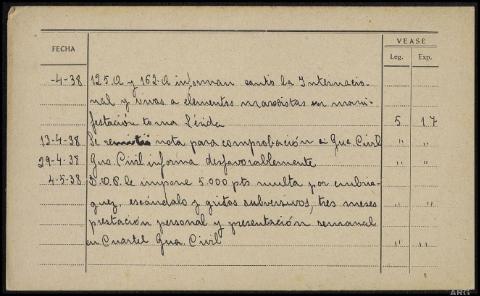 VEASE
FECHA
Leg. Exp.
-4-38 125.A y 162.A informan cantó la Internacio-
nal y vivas a elementos marxistas en mani-
festación toma Lérida 5 17
13-4-38 Se remitió nota para comprobación a Gua. Civil " "
29-4-38 Gua. Civil informa desfavorablemente " "
4-5-38 D.O.P. le impone 5.000 pts multa por embria-
guez, escándalo y gritos subversivos, tres meses " "
prestación personal y presentación semanal
en Cuartel Gua. Civil " "
ARG